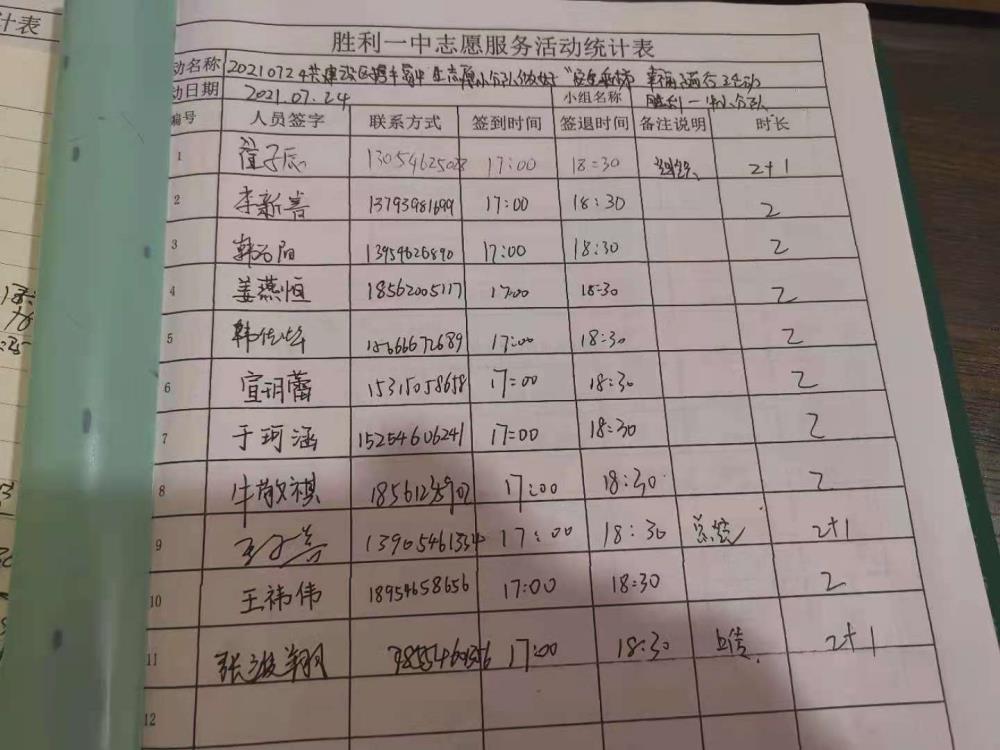 计表
胜利一中志愿服务活动统计表
动名称 20210724共建
动日期 2021.07.24 小组名称 胜利一中小分队
编号 人员签字 联系方式 签到时间 签退时间 备注说明 时长
1 子辰 13054625028 17:00 18:30 组织 2+1
2 李新善 13793981699 17:00 18:30 2
3 韩 阳 13954626890 17:00 18:30 2
4 姜燕恒 18562005117 17:00 18:30 2
5 韩佳烨 15666672689 17:00 18:30 2
6 宣玥蕾 15315058658 17:00 18:30 2
7 于珂涵 15254606241 17:00 18:30 2
8 牛敬祺 17:00 18:30 2
9 17:00 18:30 总结 2+1
10 王祎伟 18954658656 17:00 18:30 2
11 张浚翔 17:00 18:30 上传 2+1
12